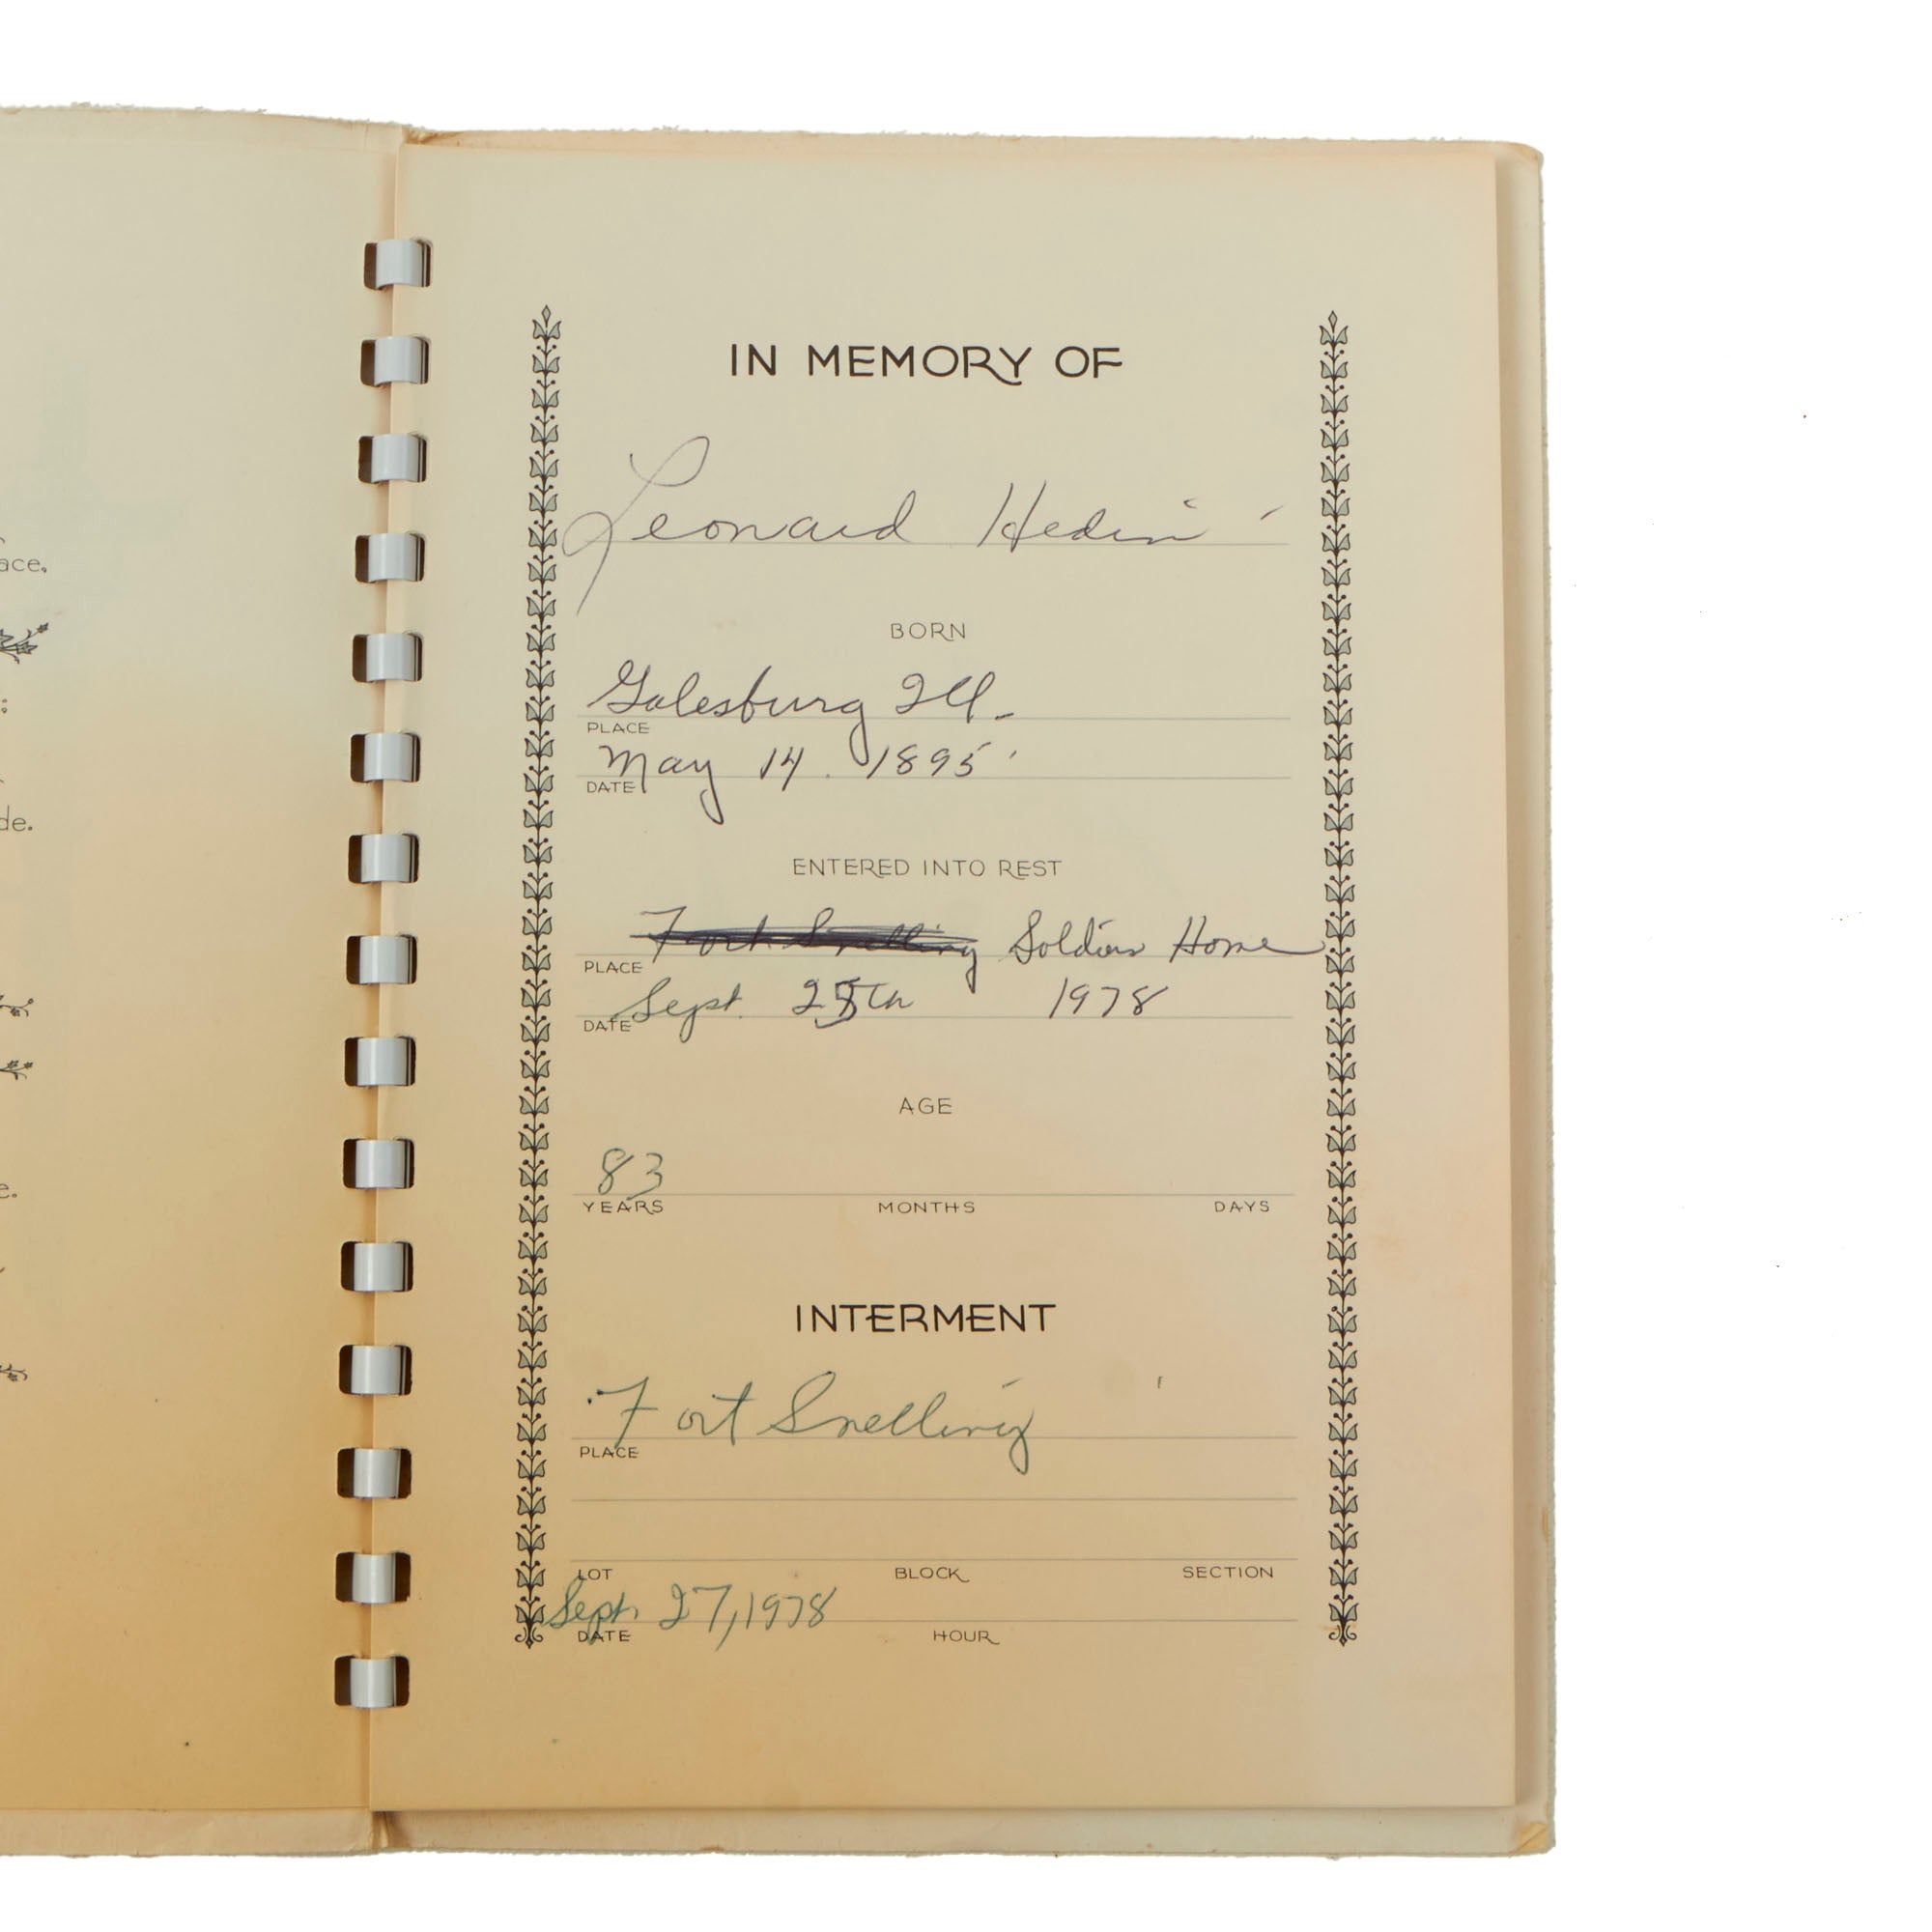 ace.
:
de.
e.
IN MEMORY OF
Leonard Hedin
BORN
Galesburg Ill.
PLACE
May 14. 1895
DATE
ENTERED INTO REST
Fort Snelling Soldiers Home
PLACE
Sept. 25th 1978
DATE
AGE
83
YEARS MONTHS DAYS
INTERMENT
Fort Snelling
PLACE
LOT BLOCK SECTION
Sept 27, 1978
DATE HOUR